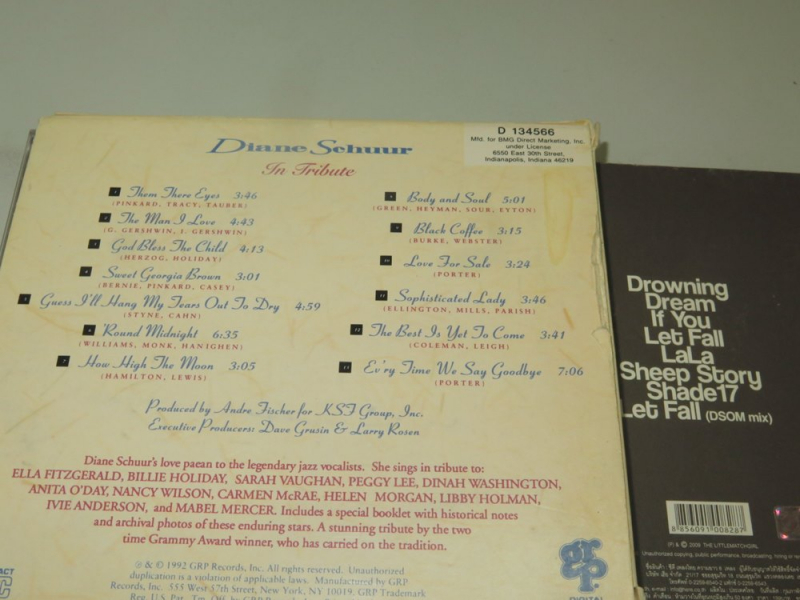 Diane Schuur
In Tribute
D 134566
Mfd. for BMG Direct Marketing, Inc.
under License
6550 East 30th Street,
Indianapolis, Indiana 46219
1 Them There Eyes 3:46
(PINKARD, TRACY, TAUBER)
2 The Man I Love 4:43
(G. GERSHWIN, I. GERSHWIN)
3 God Bless The Child 4:13
(HERZOG, HOLIDAY)
4 Sweet Georgia Brown 3:01
(BERNIE, PINKARD, CASEY)
5 Guess I'll Hang My Tears Out To Dry 4:59
(STYNE, CAHN)
6 Round Midnight 6:35
(WILLIAMS, MONK, HANIGHEN)
7 How High The Moon 3:05
(HAMILTON, LEWIS)
Body and Soul 5:01
(GREEN, HEYMAN, SOUR, EYTON)
Black Coffee 3:15
(BURKE, WEBSTER)
Love For Sale 3:24
(PORTER)
Sophisticated Lady 3:46
(ELLINGTON, MILLS, PARISH)
12 The Best Is Yet To Come 3:41
(COLEMAN, LEIGH)
13 Ev'ry Time We Say Goodbye 7:06
(PORTER)
Produced by Andre Fischer for KSF Group, Inc.
Executive Producers: Dave Grusin & Larry Rosen
Diane Schuur's love paean to the legendary jazz vocalists. She sings in tribute to:
ELLA FITZGERALD, BILLIE HOLIDAY, SARAH VAUGHAN, PEGGY LEE, DINAH WASHINGTON,
ANITA O'DAY, NANCY WILSON, CARMEN McRAE, HELEN MORGAN, LIBBY HOLMAN,
IVIE ANDERSON, and MABEL MERCER. Includes a special booklet with historical notes
and archival photos of these enduring stars. A stunning tribute by the two
time Grammy Award winner, who has carried on the tradition.
℗ & © 1992 GRP Records, Inc. All rights reserved. Unauthorized
duplication is a violation of applicable laws. Manufactured by GRP
Records, Inc. 555 West 57th Street, New York, NY 10019. GRP Trademark
Reg. U.S. Pat.
grp
DIGITAL
Drowning
Dream
If You
Let Fall
LaLa
Sheep Story
Shade17
Let Fall (DSOM mix)
8 856091 008287
(P) & © 2008 THE LITTLEMATCHGIRL
Unauthorized copying, public performance, broadcasting,